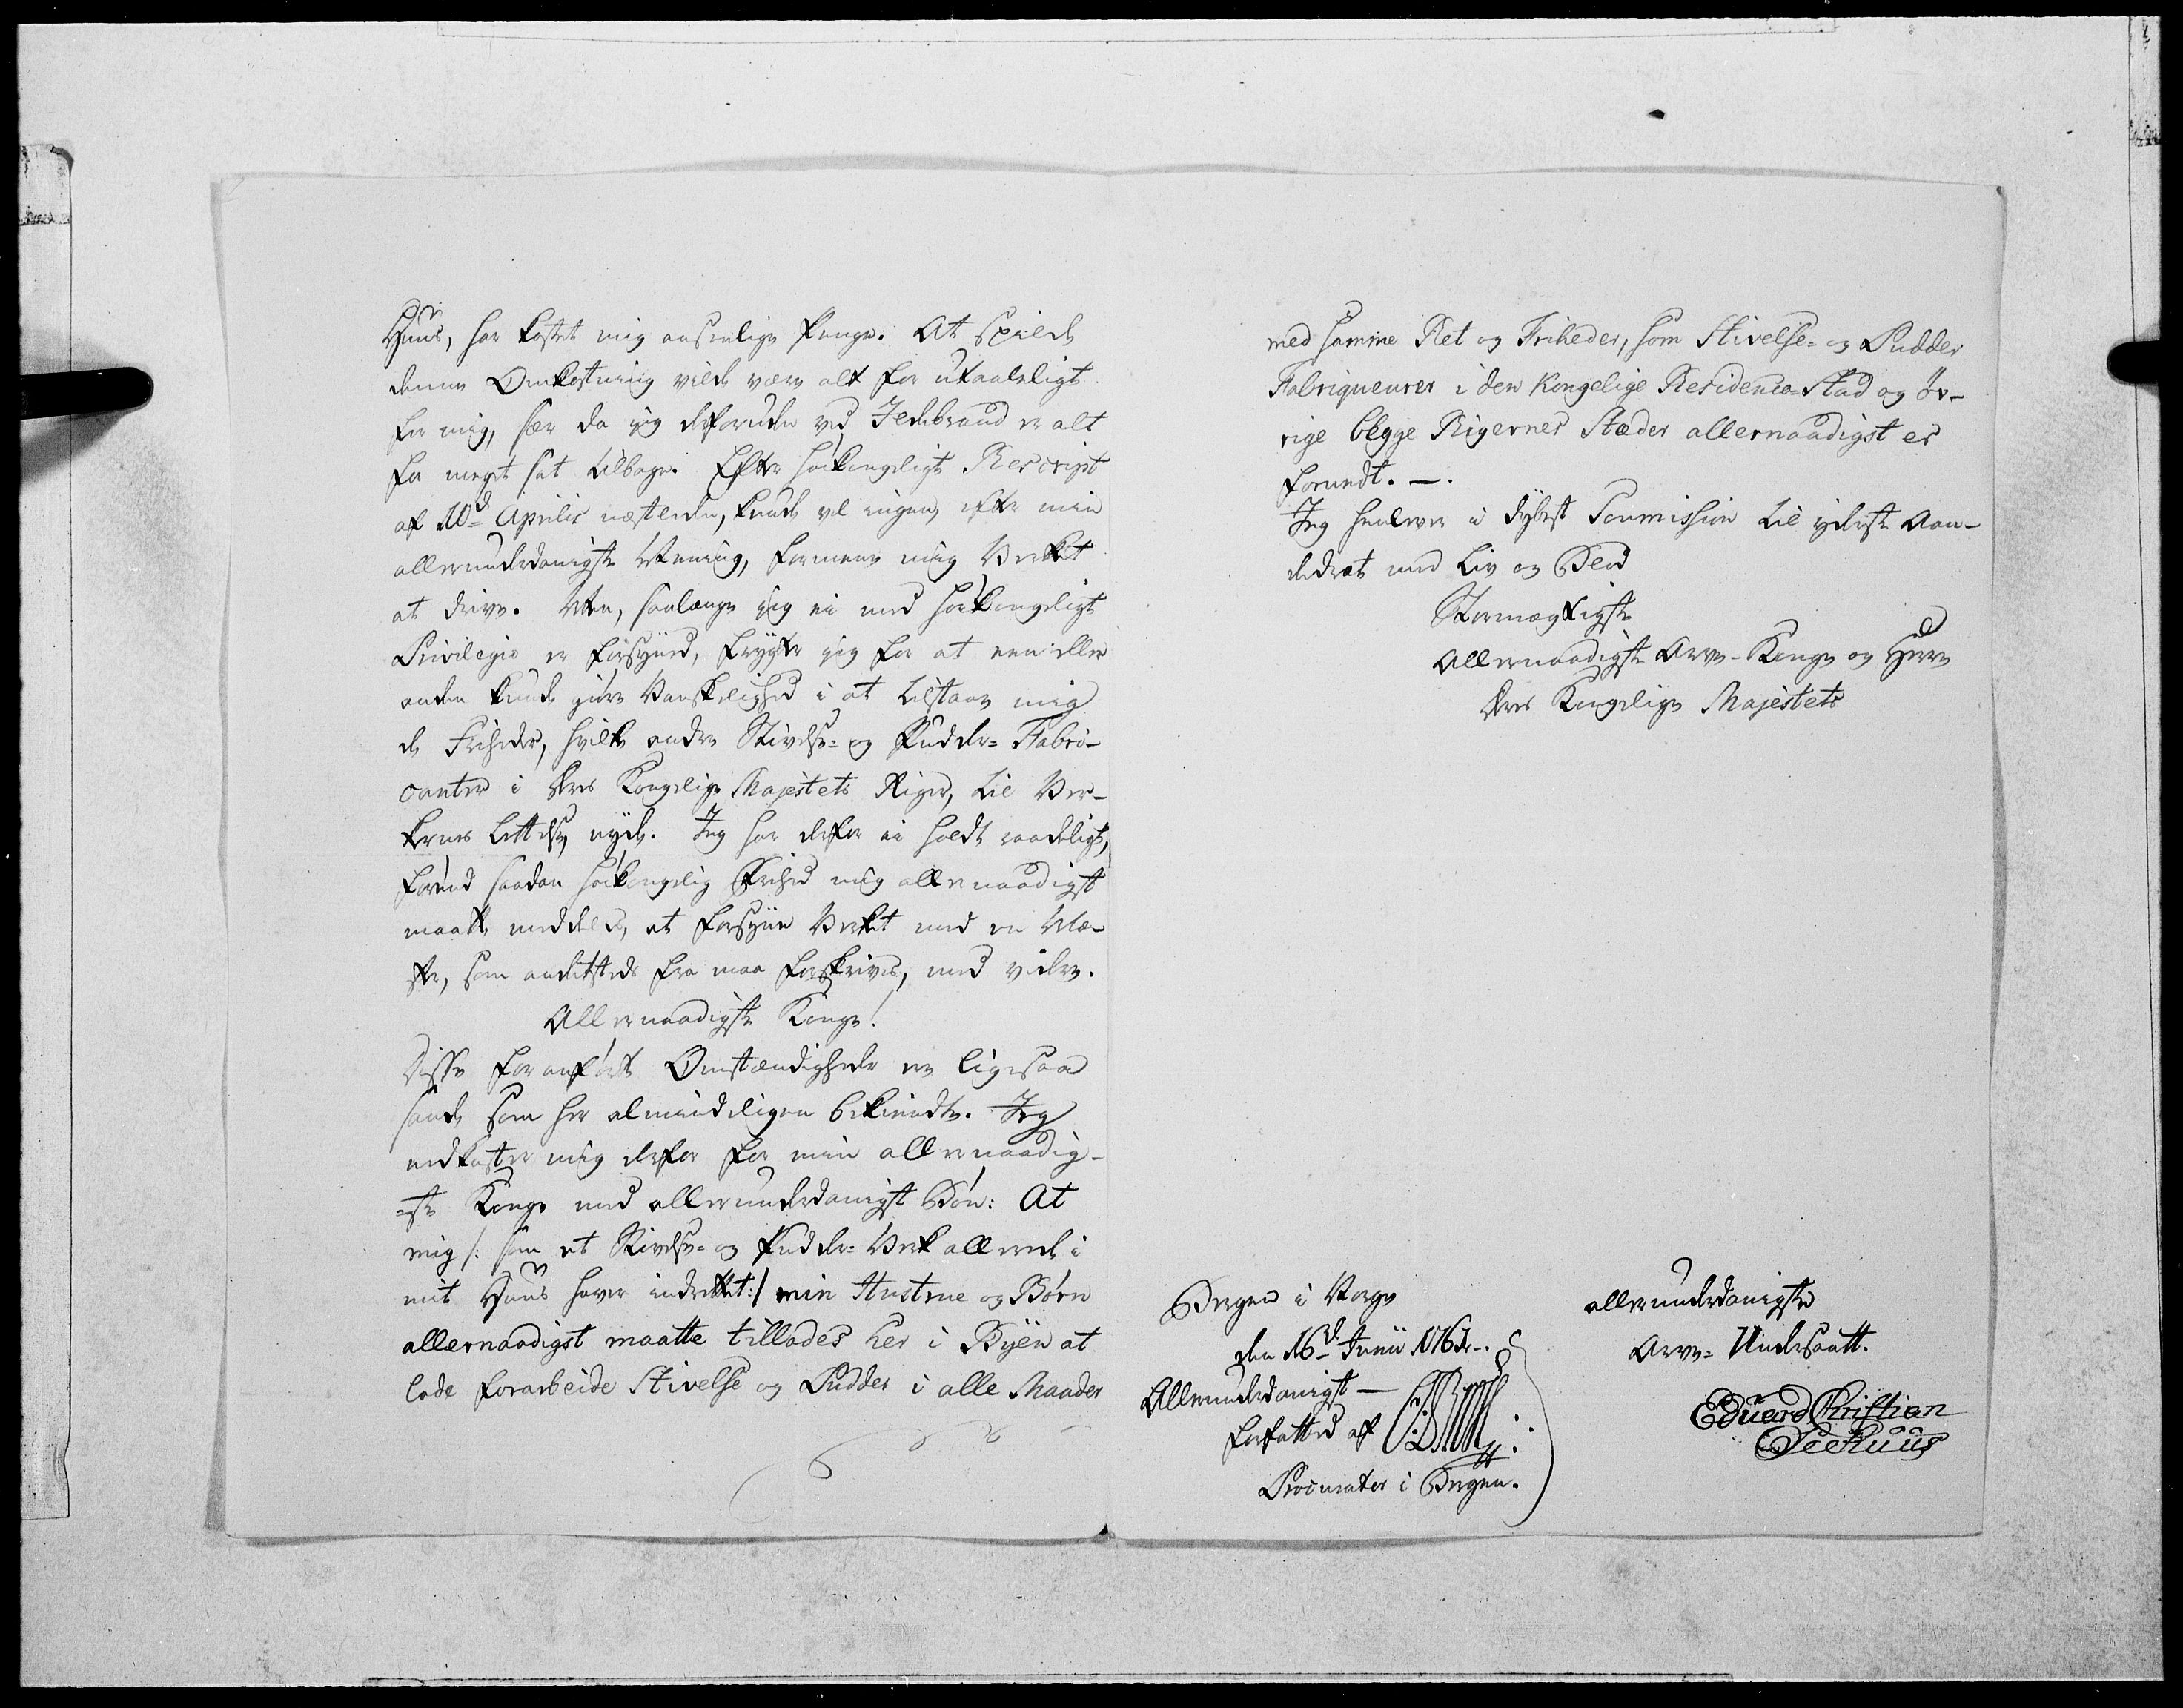 Huus, har kostet mig anseelige Penge. At spilde
denne Omkostning vilde være alt for utaaleligt
for mig, sær da jeg desforuden ved Ildebrand er alt
for meget sat tilbage. Efter høikongeligt Rescript
af Aprilis næstleden, kunde vel ingen, efter min
allerunderdanigste Mening, formene mig Verket
at drive. Men, saalænge jeg ei med høikongeligt
Privilegio er forsyned, frygter jeg for at een eller
anden kunde giøre Vanskelighed i at tilstaae mig
de Friheder, hvilke andre Stivelse- og Pudder- Fabri-
canter i Deres Kongelige Majestets Riger, til Ver-
kernes Lettelse, nyde. Jeg har derfor ei holdt raadeligt,
førend saadan høikongelig Frihed mig allernaadigst
maatte meddeeles, at forsyne Verket med en Mæ-
ster, som andetsteds fra maa forskrives, med videre.
Allernaadigste Konge!
Disse foranførte Omstændigheder ere ligesaa
sande som her almindeligen bekiendte. Jeg
nedkaster mig derfor for min allernaadig-
=ste Konge med allerunderdanigst Bøn: At
mig /: som et Stivelse- og Pudder- Verk allerede i
mit Huus haver indrettet :/ min Hustrue og Børn
allernaadigst maatte tillades her i Byen at
lade forarbeide Stivelse og Pudder i alle Maader
med samme Ret og Friheder, som Stivelse- og Pudder
Fabriqueurer i den Kongelige Residence-Stad og øv-
rige begge Rigernes Stæder allernaadigst er
forundt. —.
Jeg henlever i dybest Soumission til yderste Aan-
dedræt med Liv og Blod
Stormægtigste
Allernaadigste Arve-Konge og Herre
Deres Kongelige Majestets
Bergen i Norge
den 16d Junii
Allerunderdanigst —
forfatted af
Procurator i Bergen.
allerunderdanigste
Arve- Undersaatt.
Eduard Christian